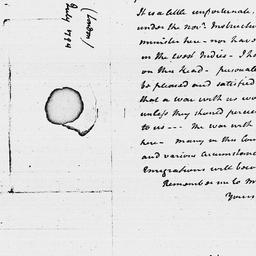 (London)
July 1794
It is a little unfortunate.
under the nov.r Instructi
minister here - nor have
in the West Indies - I ho
on this Head - personall
be pleased and satisfied
that a war with us wou
unless they should percei
to us --- The war with
here - many in this Cou
and various circumstanc
Emigrations will beco
Remember me to M
Yours